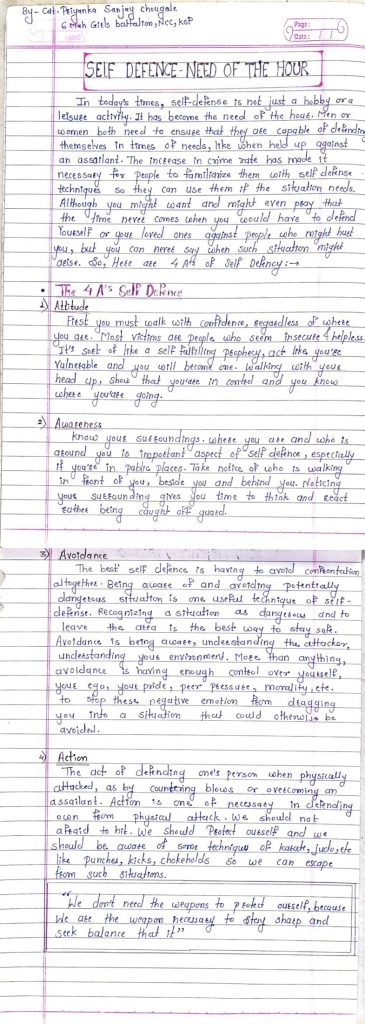 By - Cdt. Priyanka Sanjay chougale
6 Mah Girls battalion, NCC, KOP
Page:
Date:
SELF DEFENCE - NEED OF THE HOUR
In today's times, self-defense is not just a hobby or a
leisure activity. It has become the need of the hour. Men or
women both need to ensure that they are capable of defending
themselves in times of needs, like when held up against
an assailant. The increase in crime rate has made it
necessary for people to familiarize them with self defense
techniques so they can use them if the situation needs.
Although you might want and might even pray that
the time never comes when you would have to defend
Yourself or your loved ones against people who might hurt
you, but you can never say when such situation might
arise. So, Here are 4 A's of Self Defency :→
• The 4 A's Self Defence
1) Attitude
First you must walk with confidence, regardless of where
you are. Most victims are people who seem insecure & helpless
It's sort of like a self fulfilling prophecy, act like you're
vulnerable and you will become one. Walking with your
head up, show that you're in control and you know
where you're going.
2) Awareness
know your surroundings. where you are and who is
around you is important aspect of self defence, especially
if you're in public places. Take notice of who is walking
in front of you, beside you and behind you. Noticing
your surrounding gives you time to think and react
rather being caught off guard.
3) Avoidance
The best self defence is having to avoid confrontation
altogether. Being aware of and avoiding potentially
dangerous situation is one useful technique of self-
defense. Recognizing a situation as dangerous and to
leave the area is the best way to stay safe.
Avoidance is being aware, understanding the attacker,
understanding your environment. More than anything,
avoidance is having enough control over yourself,
your ego, your pride, peer pressure, morality, etc.
to stop these negative emotion from dragging
you into a situation that could otherwise be
avoided.
4) Action
The act of defending one's person when physically
attacked, as by countering blows or overcoming an
assailant. Action is one of necessary in defending
own from physical attack. We should not
afraid to hit. We should Protect ourself and we
should be aware of some technique of karate, judo, etc
like punches, kicks, chokeholds so we can escape
from such situations.
"We don't need the weapons to protect ourself, because
We are the weapon necessary to stay sharp and
seek balance that it"